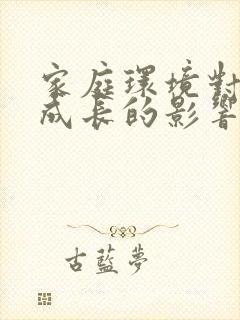 家庭環境對
成長的影響
古藍夢